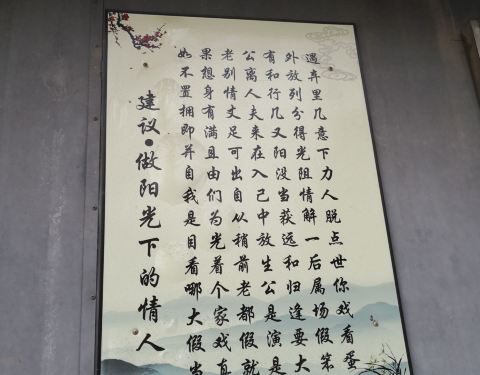 建议●做阳光下的情人
如果老公有外遇
不想别离和放弃
置身情人行列里
拥有丈夫几分几
即满足来又得意
并且可在阳光下
自由出入没阻力
我们自己当情人
是为从中获解脱
目光稍放远一点
看着前生和后世
哪个老公归属你
大家都是逢场戏
假戏假演要假看
当真就是大笨蛋